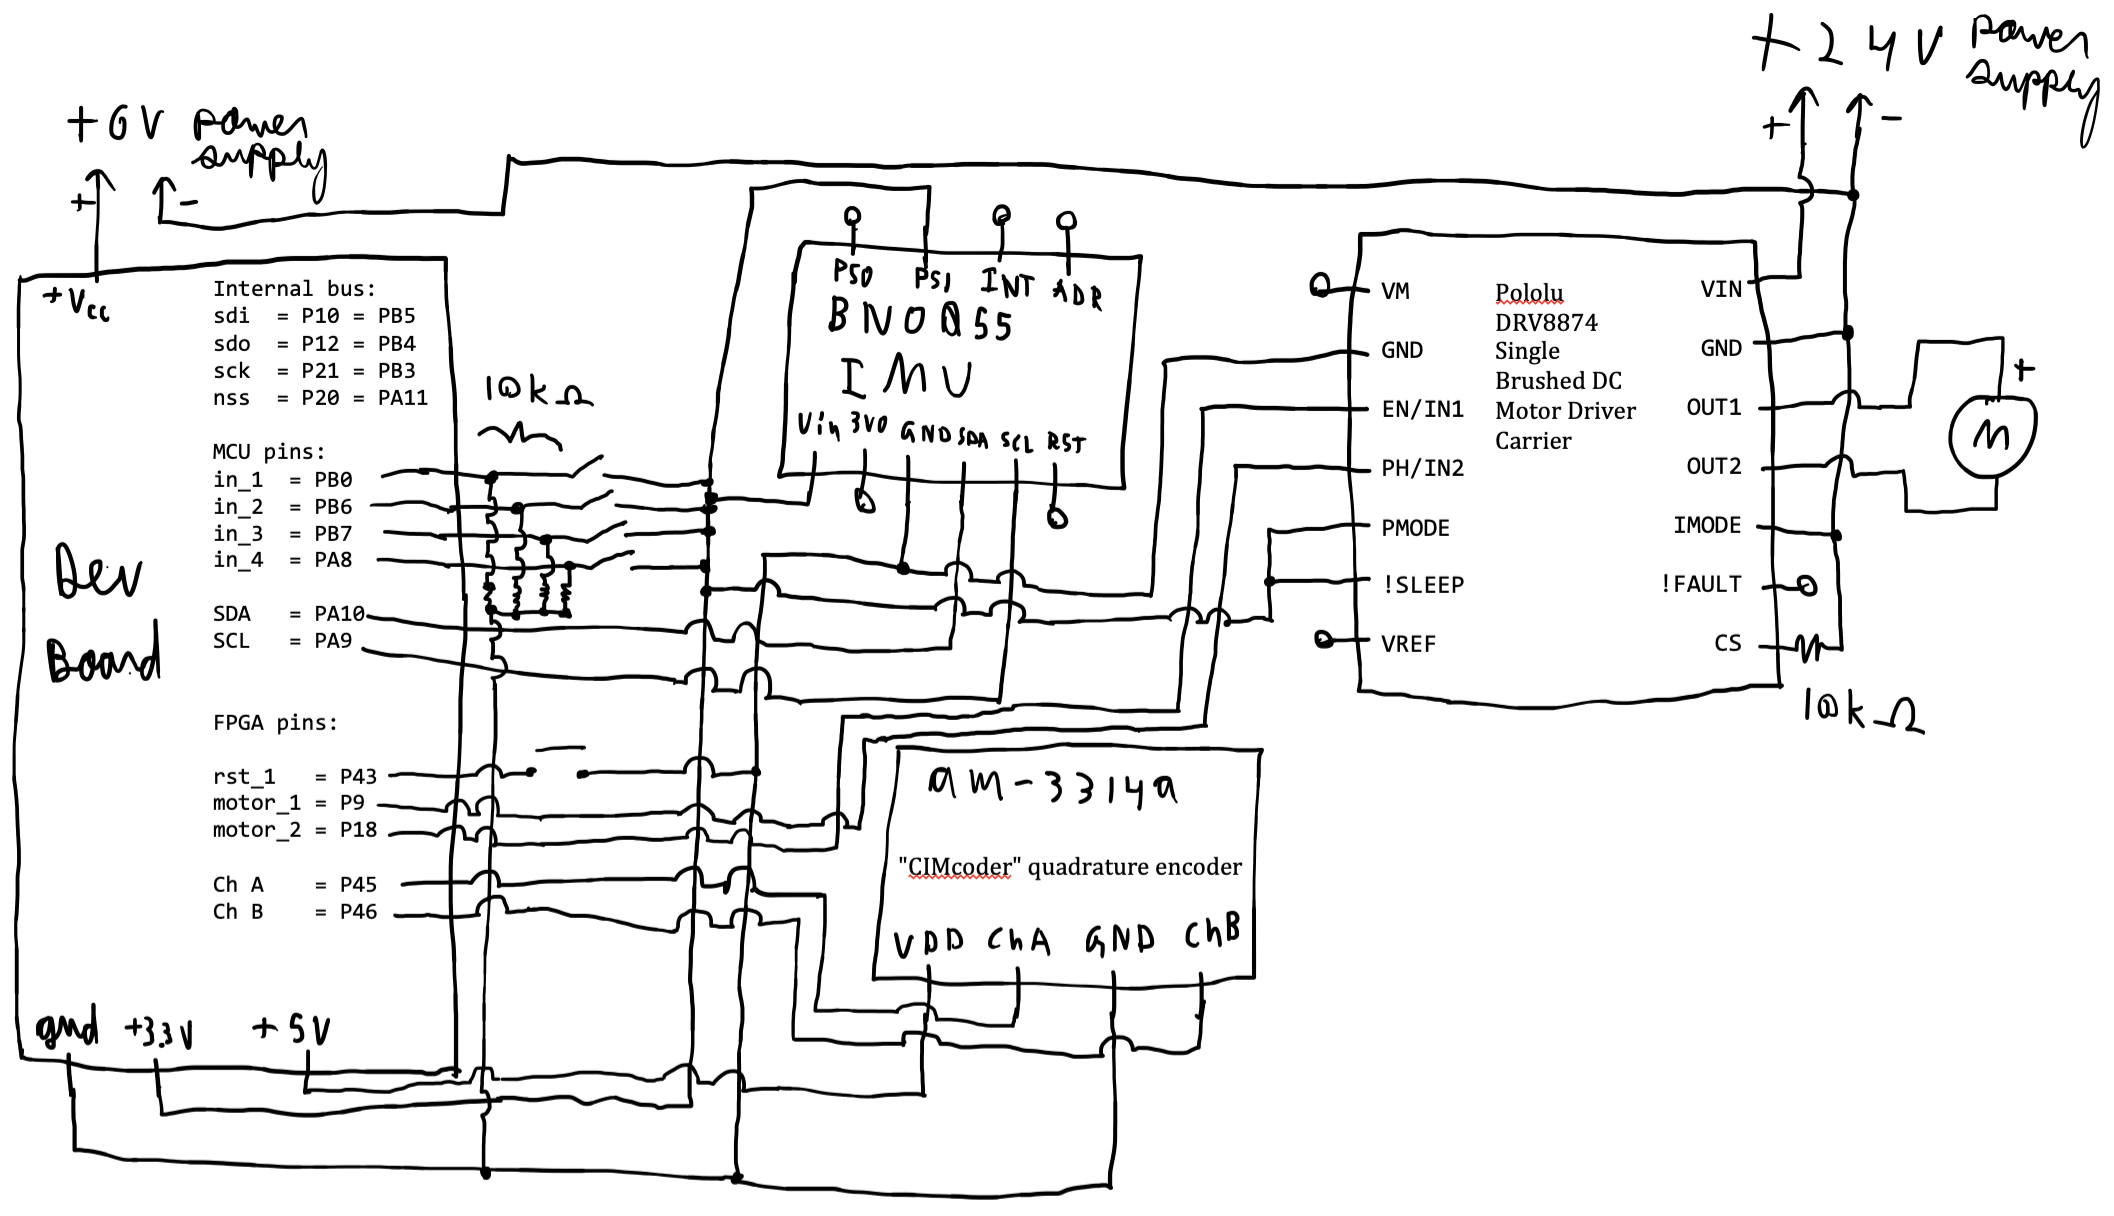 +6V power
supply
+ -
+24V power
supply
+ -
+Vcc
Dev
Board
Internal bus:
sdi = P10 = PB5
sdo = P12 = PB4
sck = P21 = PB3
nss = P20 = PA11
MCU pins:
in_1 = PB0
in_2 = PB6
in_3 = PB7
in_4 = PA8
SDA = PA10
SCL = PA9
FPGA pins:
rst_1 = P43
motor_1 = P9
motor_2 = P18
Ch A = P45
Ch B = P46
gnd +3.3V +5V
10kΩ
PS0 PS1 INT ADR
BNO055
IMU
Vin 3V0 GND SDA SCL RST
am-3314a
"CIMcoder" quadrature encoder
VDD ChA GND ChB
VM
GND
EN/IN1
PH/IN2
PMODE
!SLEEP
VREF
Pololu
DRV8874
Single
Brushed DC
Motor Driver
Carrier
VIN
GND
OUT1
OUT2
IMODE
!FAULT
CS
10kΩ
+
M